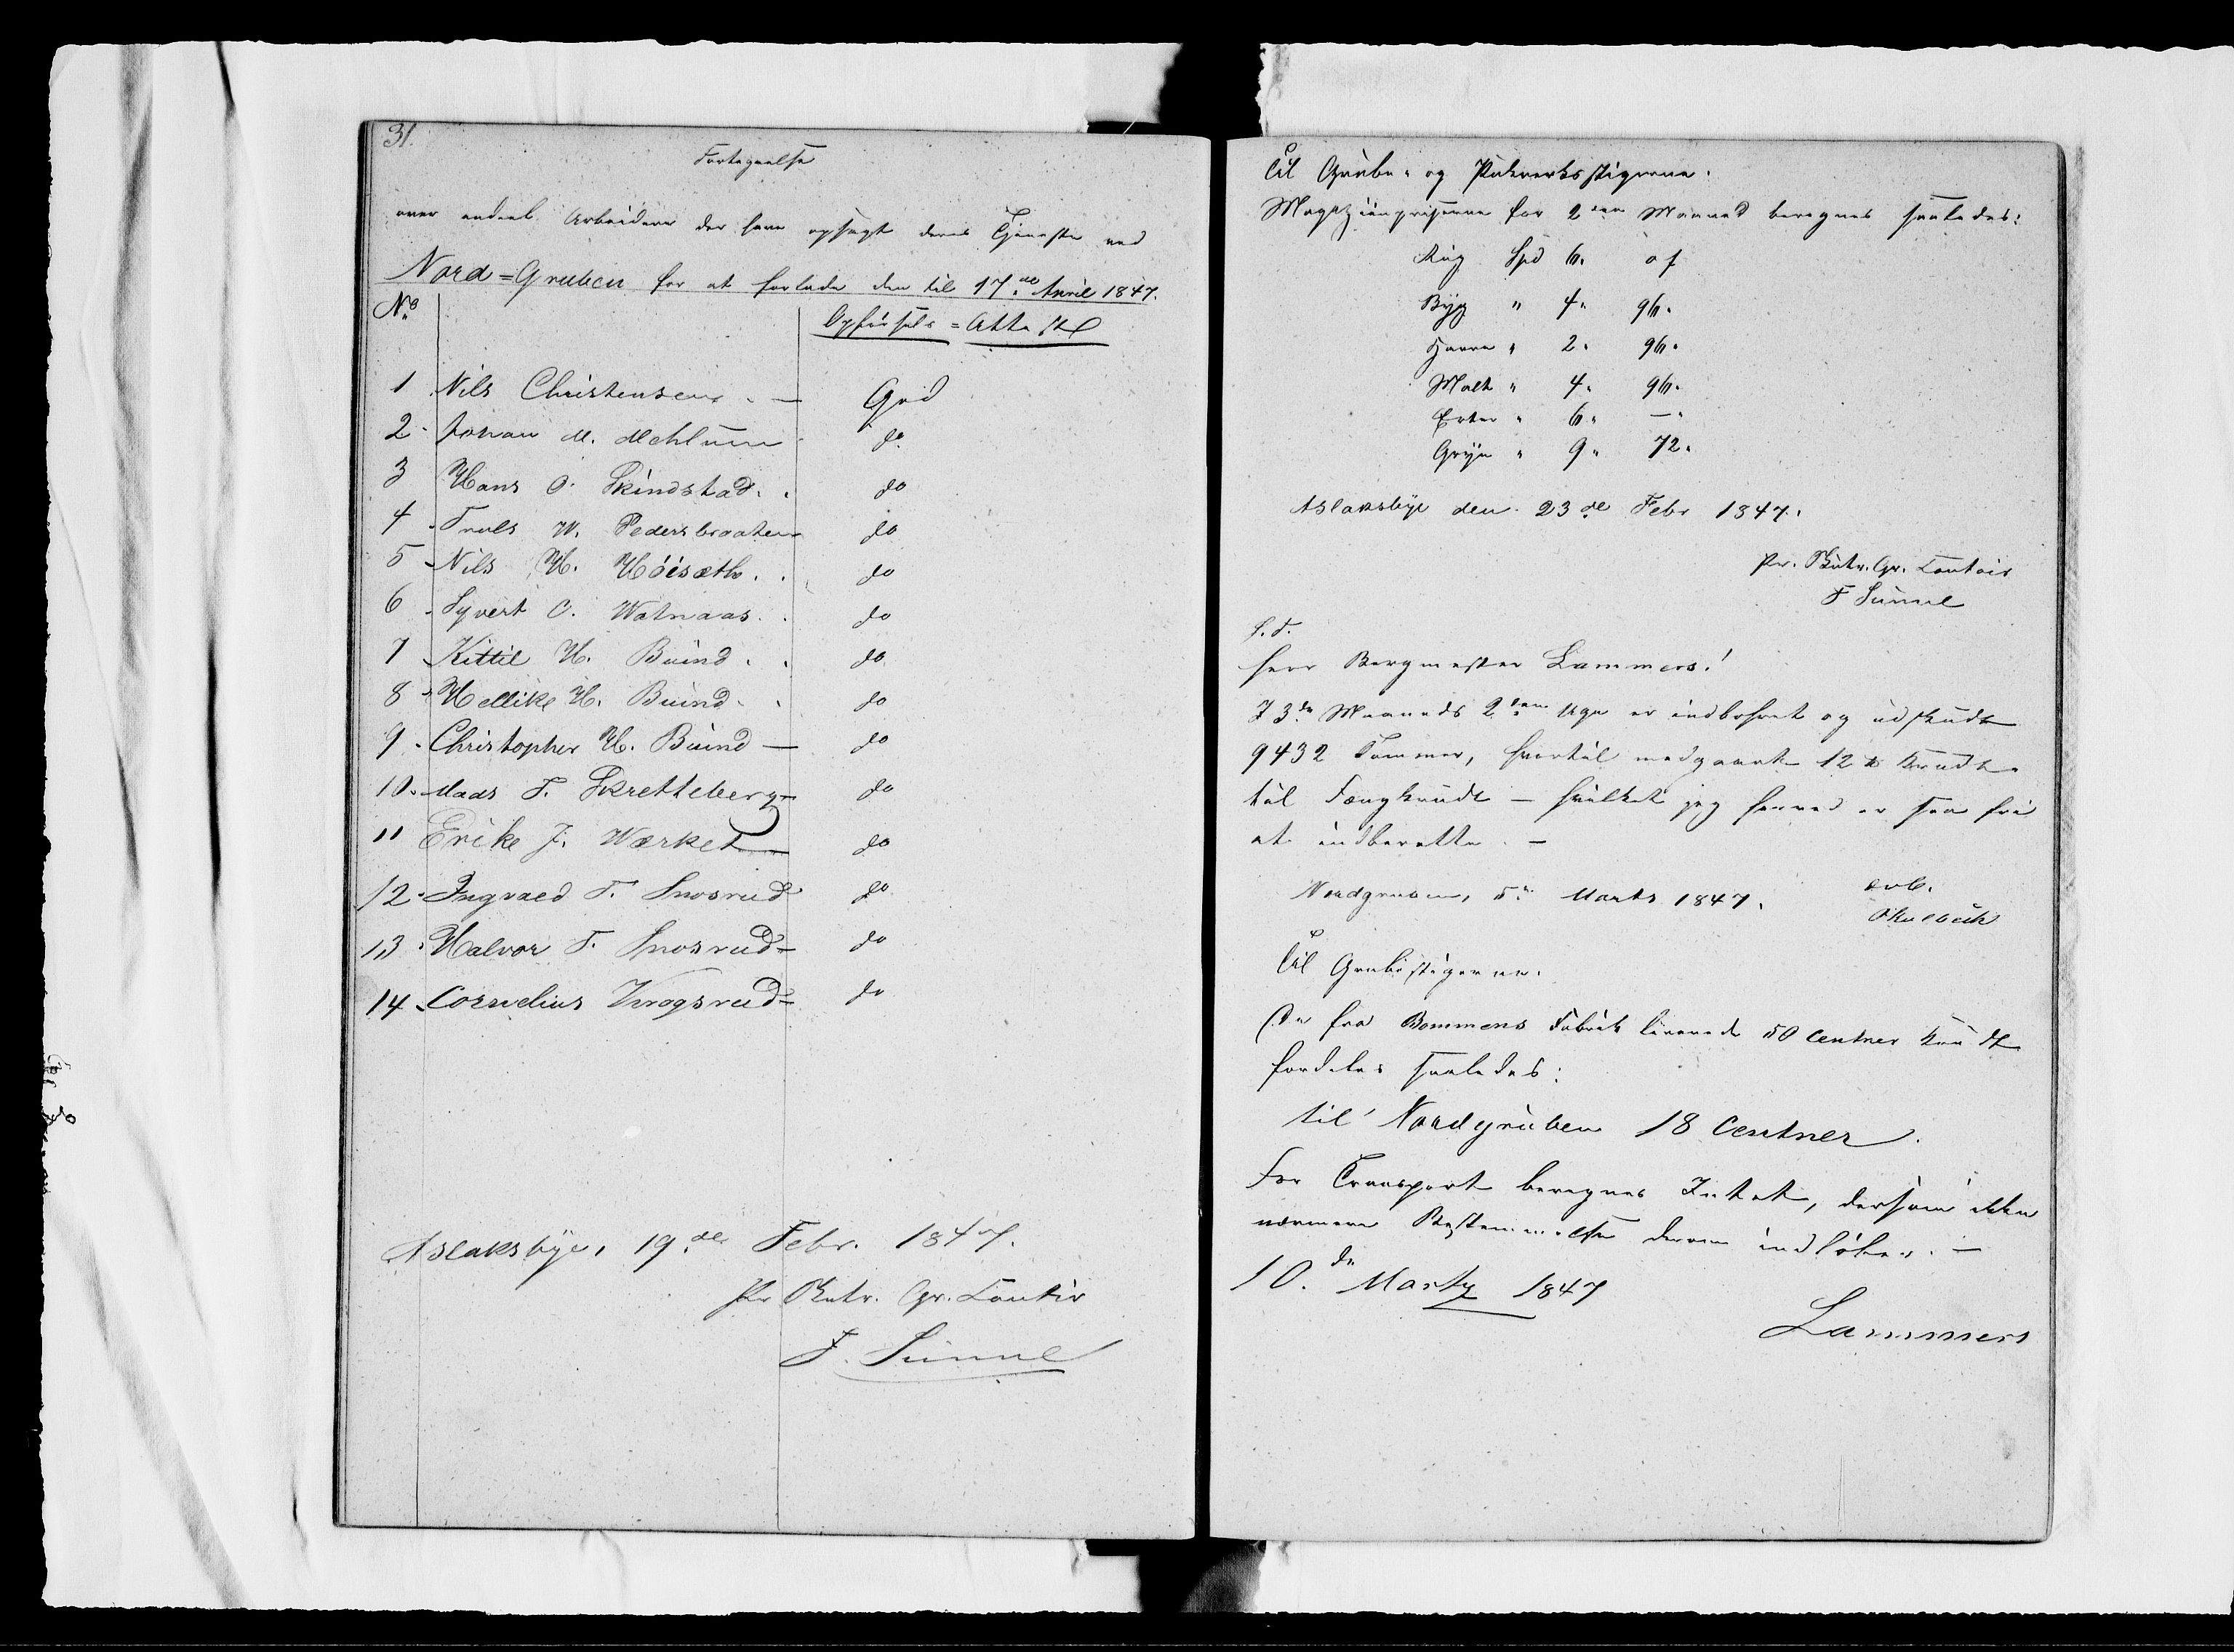 31.
Fortegnelse
over endeel Arbeidere der have opsagt deres Tjeneste ved
Nord=Gruben for at forlade den til 17de April 1847.
No
Opførsels=Attest
1 Nils Christensen — God
2. Johan M. Mehlum do
3 Hans O. Skindstad. do
4. Truls N. Pedersbraaten do
5 Nils H. Höisæth. do
6. Syvert O. Watnaas. do
7 Kittil H. Buind. do
8. Hellike H. Buind. do
9. Christopher H. Buind — do
10. Mads T. Skretteberg do
11 Erike J. Wærket — do
12. Ingvald T. Snosrud do
13. Halvor T. Snosrud do
14. Cornelius Krogsrud do
Aslaksbye, 19de Febr. 1847.
Pr Gr. Contoir
F. Sinnul
Til Grube- og Pukverksstigerne.
Magazinpriserne for 2den Maaned beregnes saaledes:
Rug Spd 6. of
Byg " 4. 96.
Havre " 2. 96.
Malt " 4. 96.
Erter " 6. —"
Gryn " 9. 72.
Aslaksbye den 23de Febr 1847.
Pr. Gr. Contoir
F Sinnul
S. T.
Herr Bergmester Lammers!
I 3de Maaneds 2den Uge er indboret og udskudt
9432 Tommer, hvortil medgaaet 12 ℔ Krudt
til Fængkrudt — hvilket jeg herved er saa fri
at indberette. —
Nordgruben, 5te Marts 1847. ærb.
Skulbeck
Til Grubestigerne.
De fra Bommens Fabrik leverede 50 Centner Krudt
fordeles saaledes:
til Nordgruben 18 Centner.
For Transport beregnes Intet, dersom ikke
nærmere Bestemmelse derom indløber. —
10.de Martz 1847
Lammers